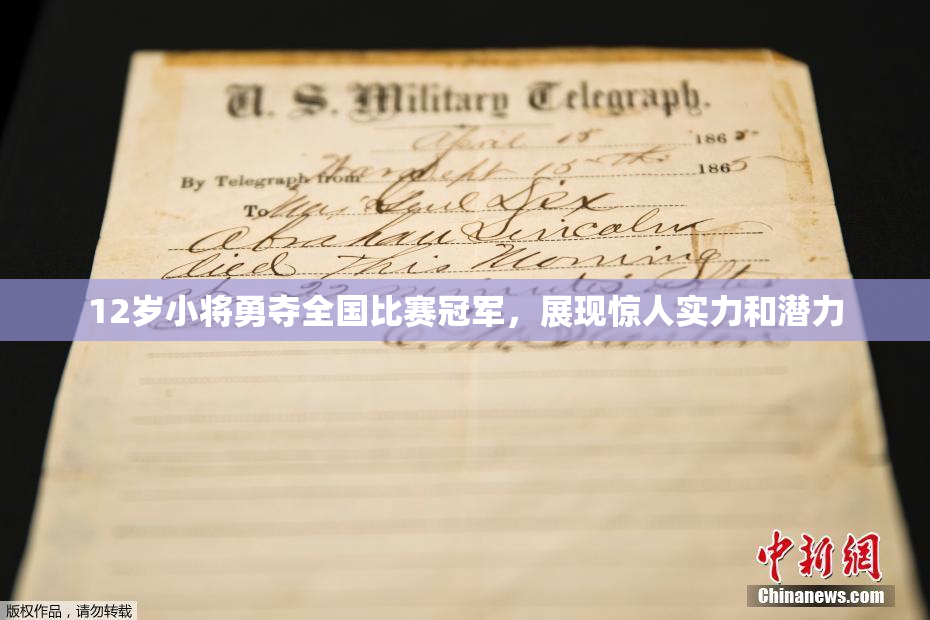 U. S. Military Telegraph.
April 15 1865.
By Telegraph from War Dept 15th 1865
To Maj Genl Dix
Abraham Lincoln
died This Morning
22 minutes after
12岁小将勇夺全国比赛冠军，展现惊人实力和潜力
E. M. Stanton
中新网
Chinanews.com
版权作品，请勿转载